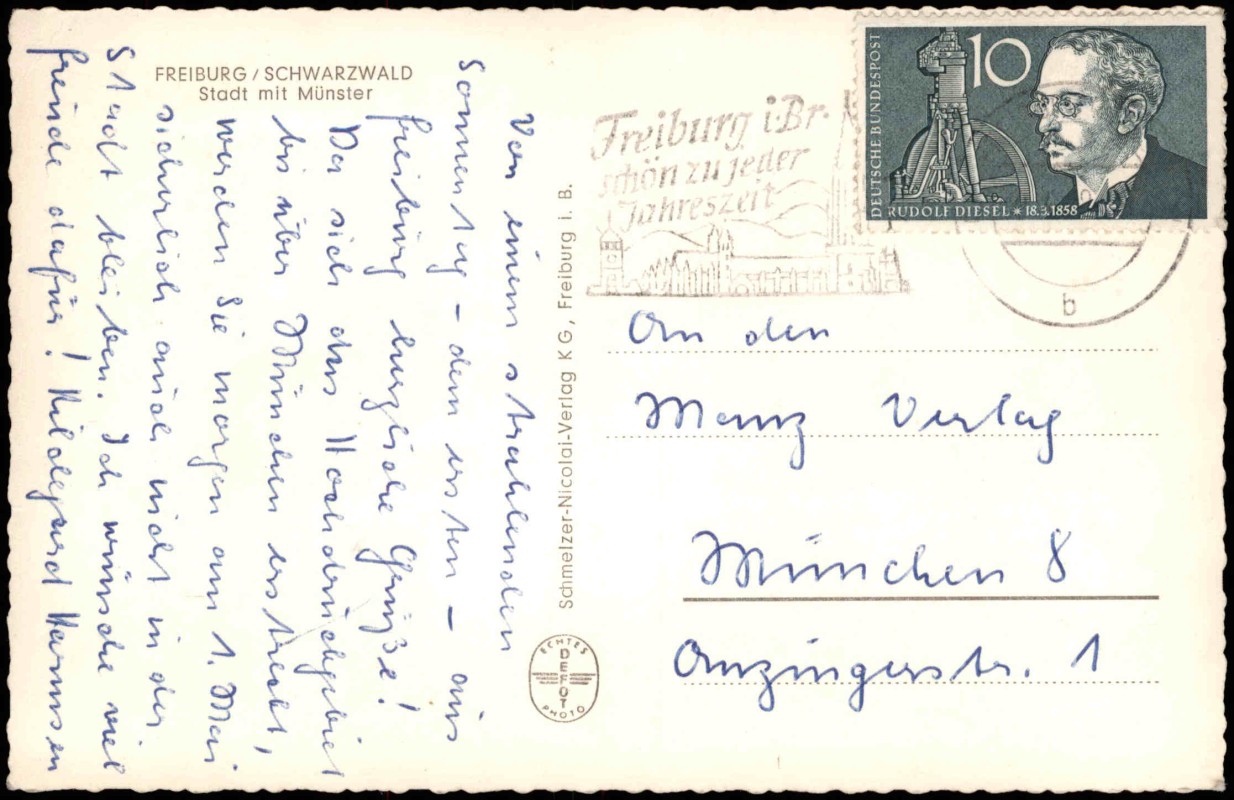 FREIBURG / SCHWARZWALD
Stadt mit Münster
Von einem strahlenden
Sonnentag – dem ersten – aus
Freiburg herzliche Grüße!
Da sich das Hochdruckgebiet
bis über München erstreckt,
werden Sie morgen am 1. Mai
sicherlich auch nicht in der
Stadt bleiben. Ich wünsche viel
Freude dafür! Hildegard Harmsen
Schmelzer-Nicolai-Verlag KG, Freiburg i. B.
ECHTES
DEFOT
PHOTO
Freiburg i. Br.
schön zu jeder
Jahreszeit
b
DEUTSCHE BUNDESPOST
10
RUDOLF DIESEL * 18.3.1858
An den
Manz Verlag
München 8
Anzingerstr. 1